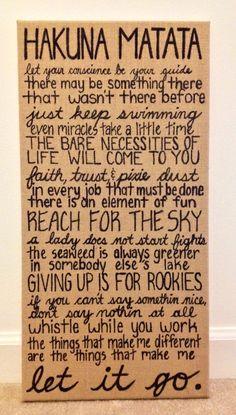 HAKUNA MATATA
let your conscience be your guide
there may be something there
that wasn't there before
just keep swimming
even miracles take a little time
THE BARE NECESSITIES OF
LIFE WILL COME TO YOU
faith, trust, & pixie dust
in every job that must be done
there is an element of fun
REACH FOR THE SKY
a lady does not start fights
the seaweed is always greener
in somebody else's lake
GIVING UP IS FOR ROOKIES
if you can't say somethin nice,
don't say nothin at all
whistle while you work
the things that make me different
are the things that make me
let it go.